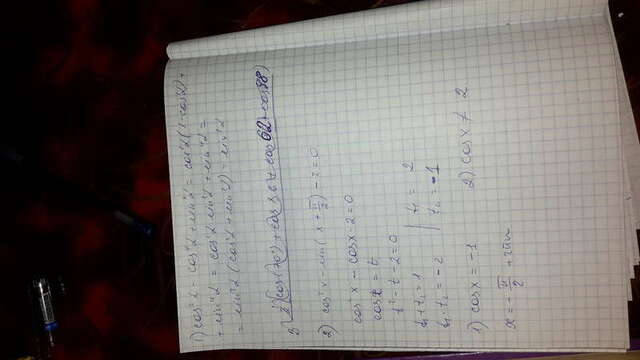 1) cos²α - cos⁴α + sin⁴α = cos²α(1-cos²α) +
+ sin⁴α = cos²α sin²α + sin⁴α =
= sin²α (cos²α + sin²α) = sin²α
2) cos²x - sin(x + π/2) - 2 = 0
cos²x - cosx - 2 = 0
cosx = t
t² - t - 2 = 0
t₁ + t₂ = 1 | t₁ = 2
t₁ · t₂ = -2 | t₂ = -1
1) cosx = -1 2) cosx ≠ 2
x = -π/2 + 2πn